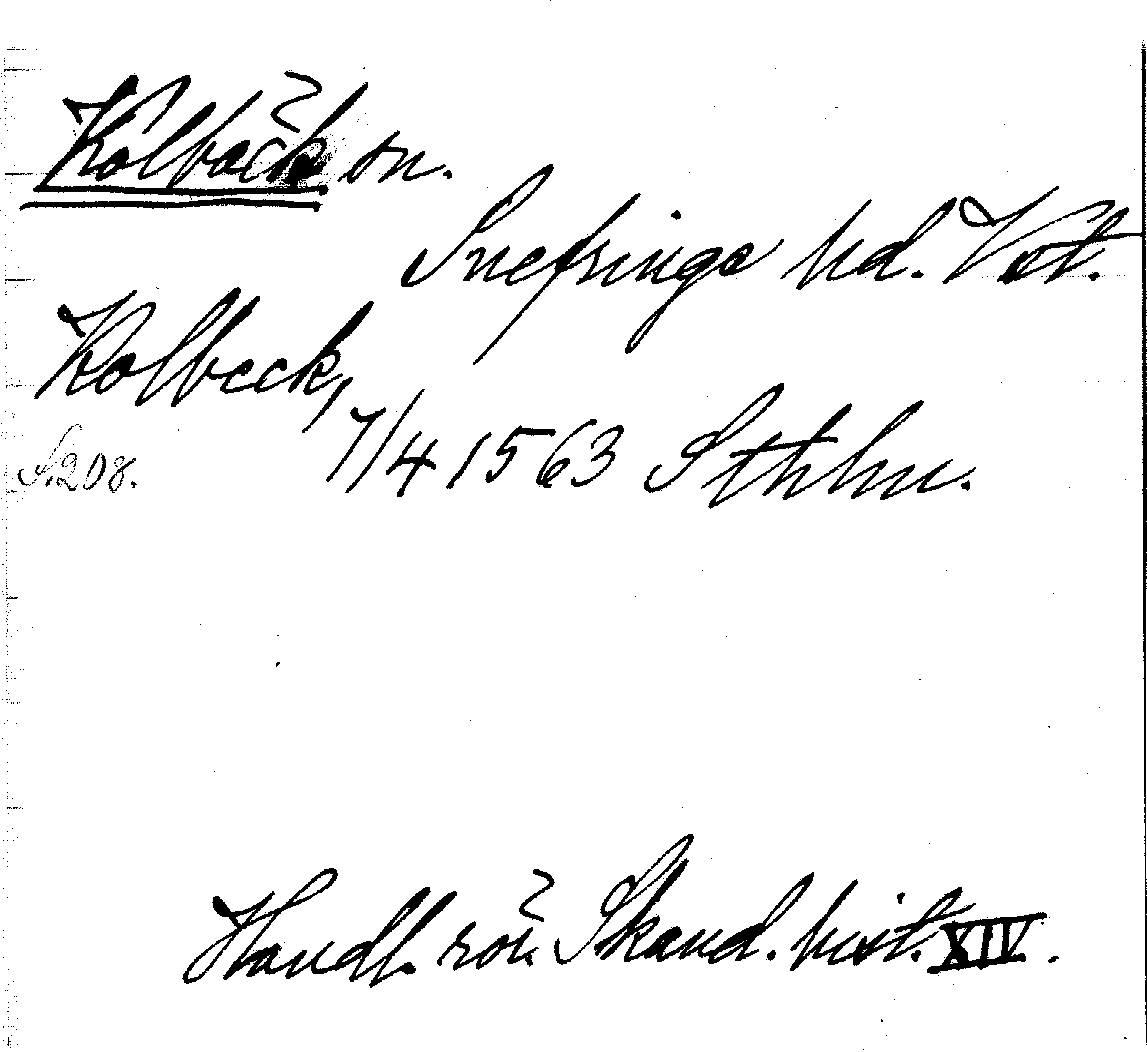 Kolbäck sn.
Snefringe hd. Vst.
Kolbeck,
7/4 1563 Sthlm.
S. 208.
Handl. rör. Skand. hist. XIV.